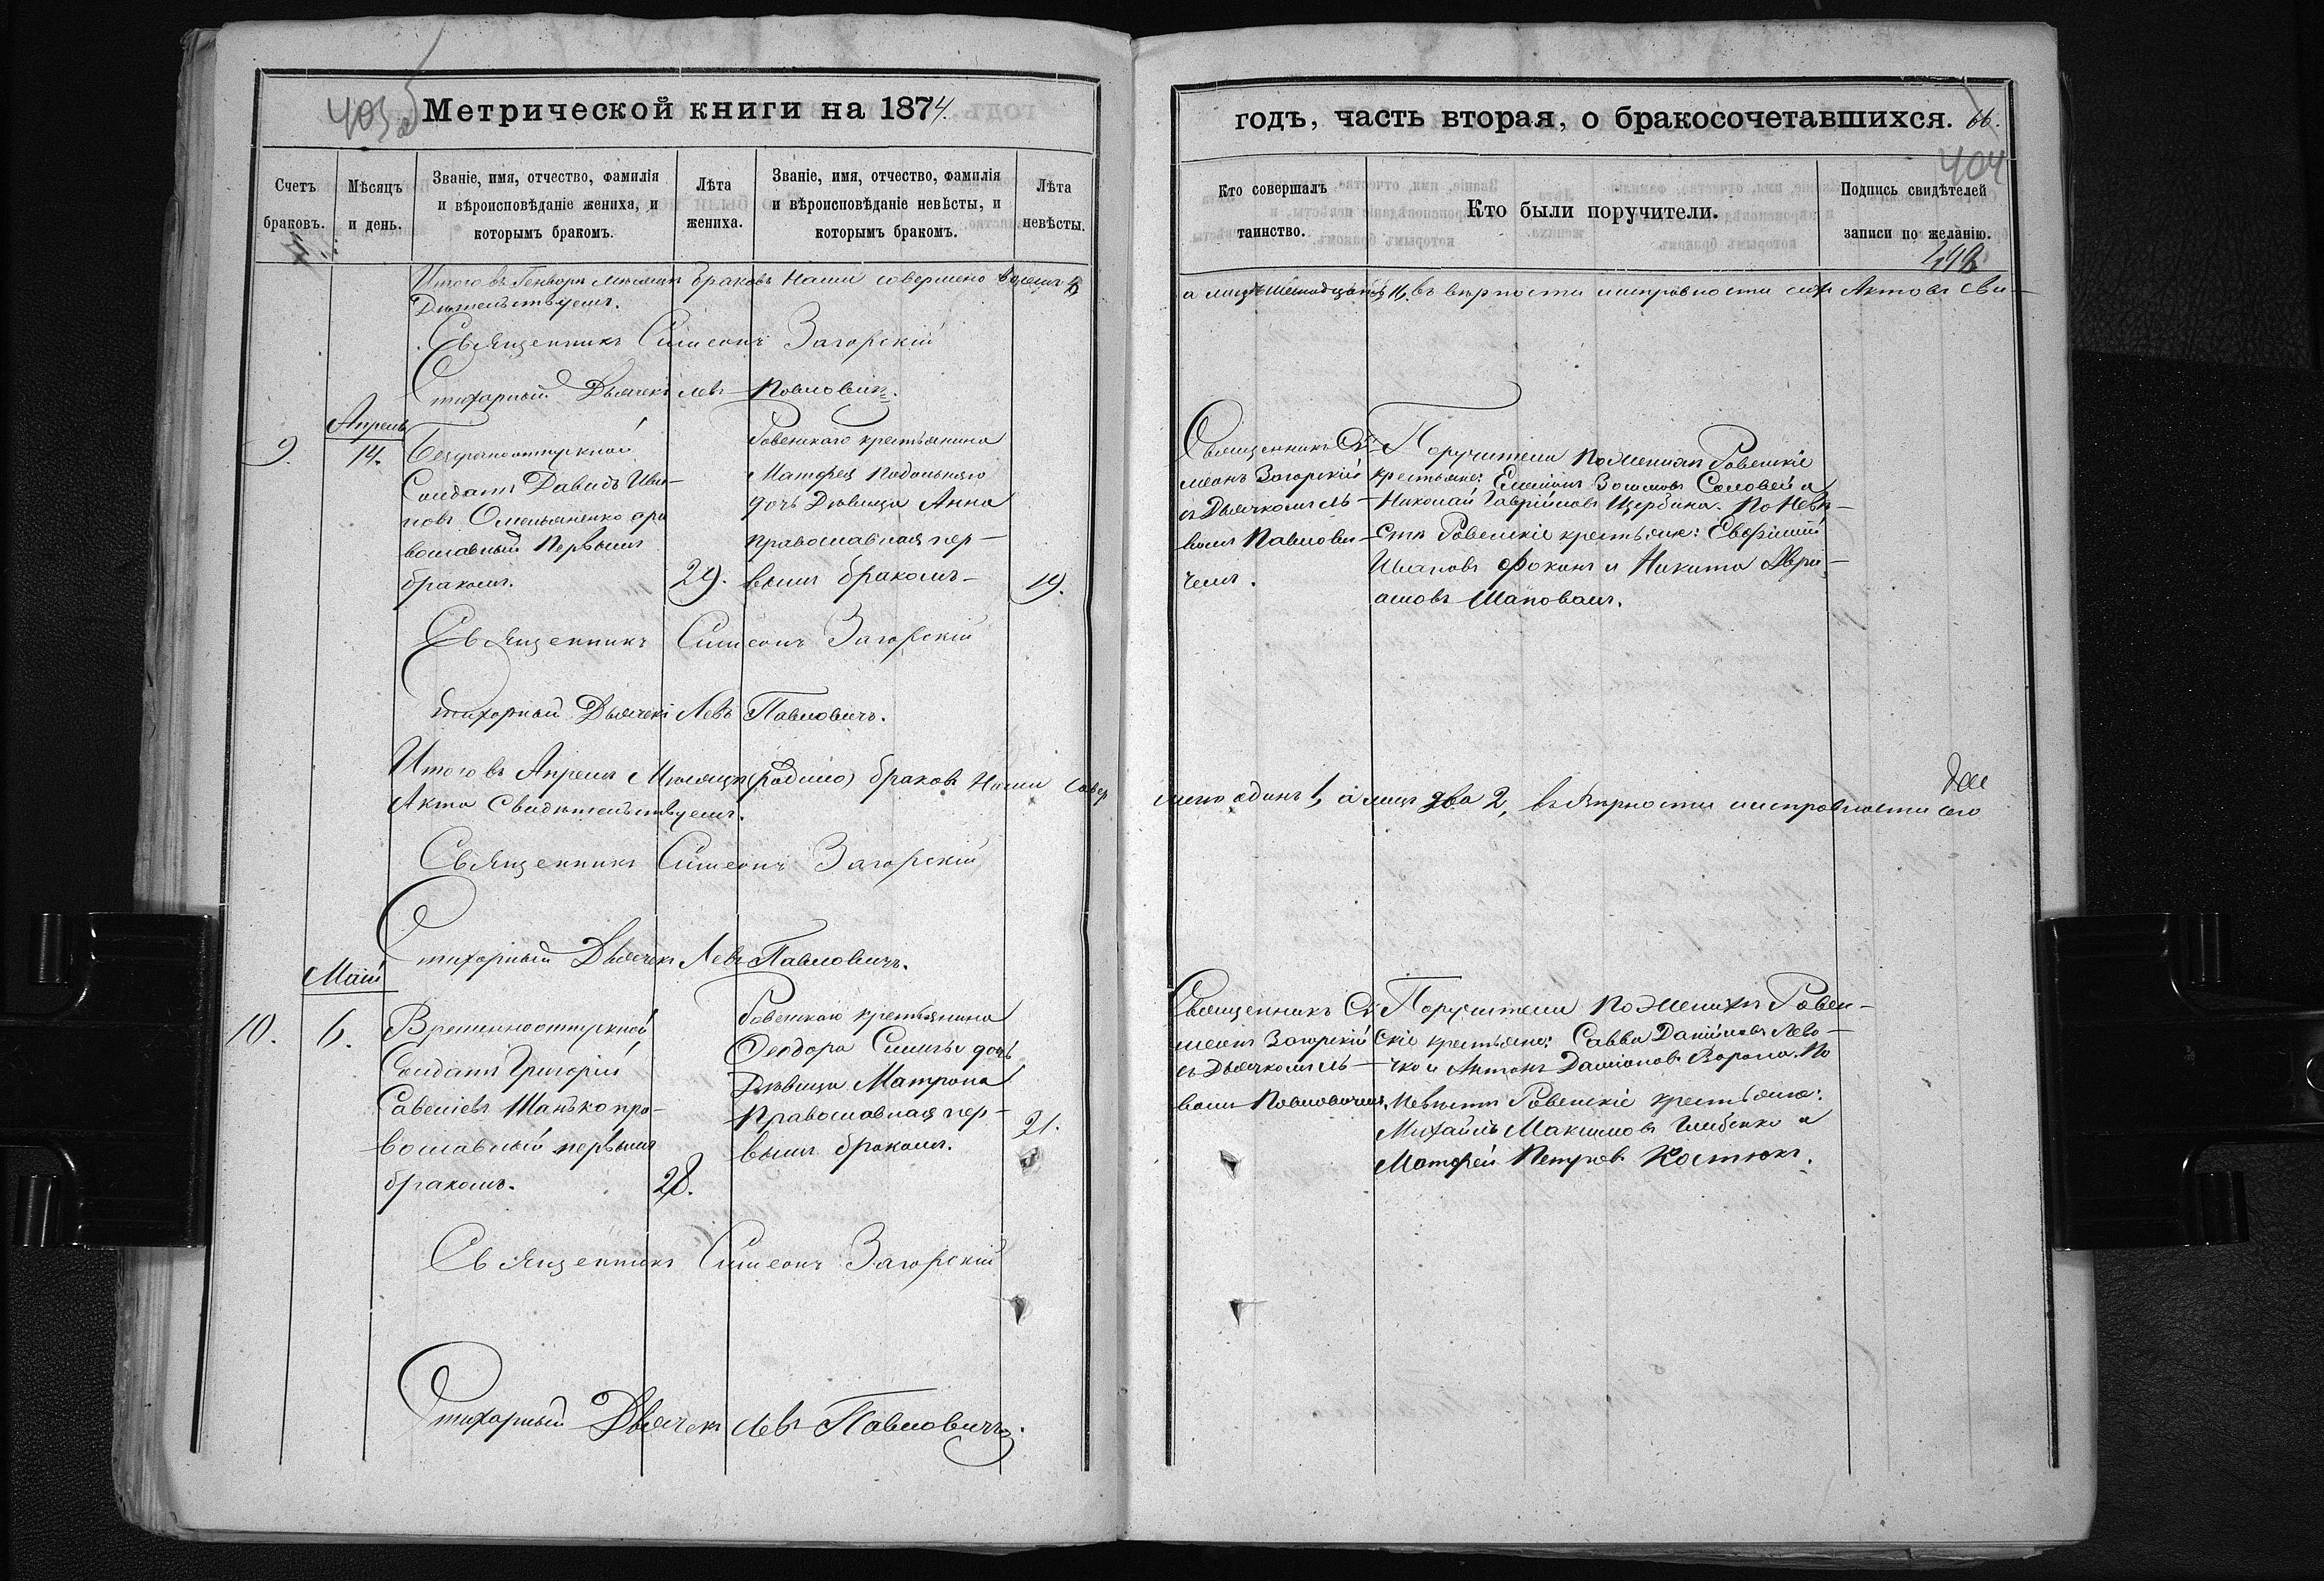 403 об
Метрической книги на 1874.
Счетъ браковъ.
Мѣсяцъ и день.
Званіе, имя, отчество, фамилія
и вѣроисповѣданіе жениха, и
которымъ бракомъ.
Лѣта жениха.
Званіе, имя, отчество, фамилія
и вѣроисповѣданіе невѣсты, и
которымъ бракомъ.
Лѣта невѣсты.
Итого въ Генварѣ Мѣсяцѣ браковъ Нами совершено восемь 8
Дѣтельствуемъ.
Священникъ Симеонъ Загорскій
Стихарный Дьячекъ Левъ Повловичъ.
Апрель
9.
14.
Безсрочноотпускной
Солдатъ Давидъ Ива-
новъ Омельяненко пра
вославный первымъ
бракомъ.
29.
Ровенскаго крестьянина
Матфея Подольнаго
дочь Дѣвица Анна
православная пер-
вымъ бракомъ-
19.
Священникъ Симеонъ Загорскій
Стихарный Дьячекъ Левъ Павловичъ.
Итого въ Апрелѣ Мѣсяцѣ браковъ Нами совер
Акта Свидѣтельствуемъ.
Священникъ Симеонъ Загорскій
Стихарный Дьячекъ Левъ Павловичъ.
Маій
10.
6.
Временноотпускной
Солдатъ Григорій
Савеліевъ Шанько пра-
вославный первымъ
бракомъ.
28.
Ровенскаго крестьянина
Феодора дочь
Дѣвица Матрона
Православная пер-
вымъ бракомъ.
21.
Священникъ Симеонъ Загорскій
Стихарный Дьячекъ Левъ Павловичъ.
годъ, часть вторая, о бракосочетавшихся.
66.
404
Кто совершалъ
таинство.
Кто были поручители.
Подпись свидѣтелей
записи по желанію.
а лицъ шестнадцать 16, въ вѣрности и исправности сихъ Актовъ Сви-
Священникъ Си-
меонъ Загорскій
съ Дьячкомъ Ль-
вомъ Павлови-
чемъ.
Поручители по Женихѣ Ровенскіе
крестьяне: Соловей и
Николай Гавріиловъ Щербина. По Невѣ-
стѣ Ровенскіе крестьяне: Евфимій
Ивановъ Фоканъ и Никита Авра-
амовъ Шаповалъ.
шено одинъ 1, а лицъ два 2, въ вѣрности и исправности сего
Священникъ Си-
меонъ Загорскій
съ Дьячкомъ Ль-
вомъ Повловичемъ.
Поручители по Женихѣ Ровен-
скіе крестьяне: Савва Даніиловъ Лево-
чко и Антонъ Даміановъ Ворона. По
Невѣстѣ Ровенскіе крестьяне:
Михаилъ Максимовъ Глибенко и
Матфей Петровъ Костюкъ.